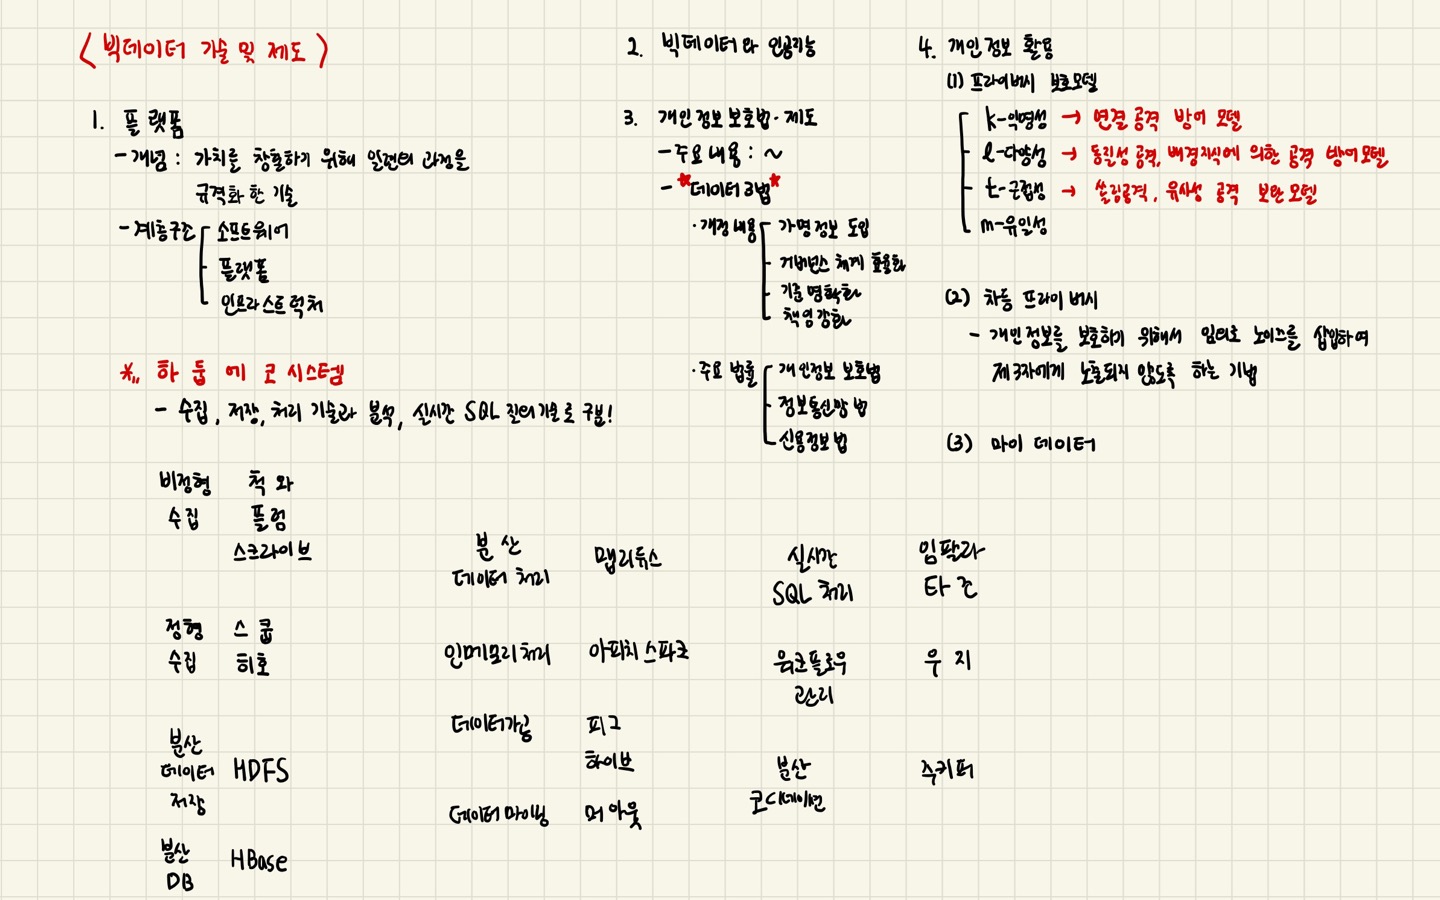 <빅데이터 기술 및 제도>
1. 플랫폼
- 개념 : 가치를 창출하기 위해 일련의 과정을
규격화 한 기술
- 계층구조 소프트웨어
플랫폼
인프라스트럭처
※ 하둡 에코시스템
- 수집, 저장, 처리 기술과 분석, 실시간 SQL 질의기술로 구분!
비정형 수집
척와
플럼
스크라이브
정형 수집
스쿱
히호
분산 데이터 저장
HDFS
분산 DB
HBase
분산 데이터 처리
맵리듀스
인메모리 처리
아파치 스파크
데이터가공
피그
하이브
데이터 마이닝
머아웃
실시간 SQL 처리
임팔라
타조
워크플로우 관리
우지
분산 코디네이션
주키퍼
2. 빅데이터와 인공지능
3. 개인정보 보호법·제도
- 주요 내용 : ~
- *데이터 3법*
· 개정 내용 가명정보 도입
거버넌스 체계 효율화
기준 명확화
책임강화
· 주요 법률 개인정보 보호법
정보통신망법
신용정보법
4. 개인정보 활용
(1) 프라이버시 보호모델
k-익명성 → 연결 공격 방어 모델
l-다양성 → 동질성 공격, 배경지식에 의한 공격 방어모델
t-근접성 → 쏠림공격, 유사성 공격 보완모델
m-유일성
(2) 차등 프라이버시
- 개인정보를 보호하기 위해서 임의로 노이즈를 삽입하여
제3자에게 노출되지 않도록 하는 기법
(3) 마이 데이터